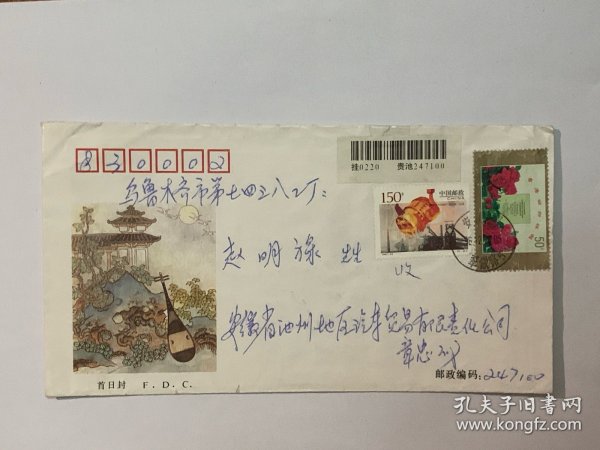 830002
挂0220 贵池247100
乌鲁木齐市第七四三八工厂:
150分 中国邮政
50分
赵明禄 收
安徽省池州地区汽车贸易有限责任公司
章忠
首日封 F. D. C.
邮政编码:247100
孔夫子旧书网
www.kongfz.com